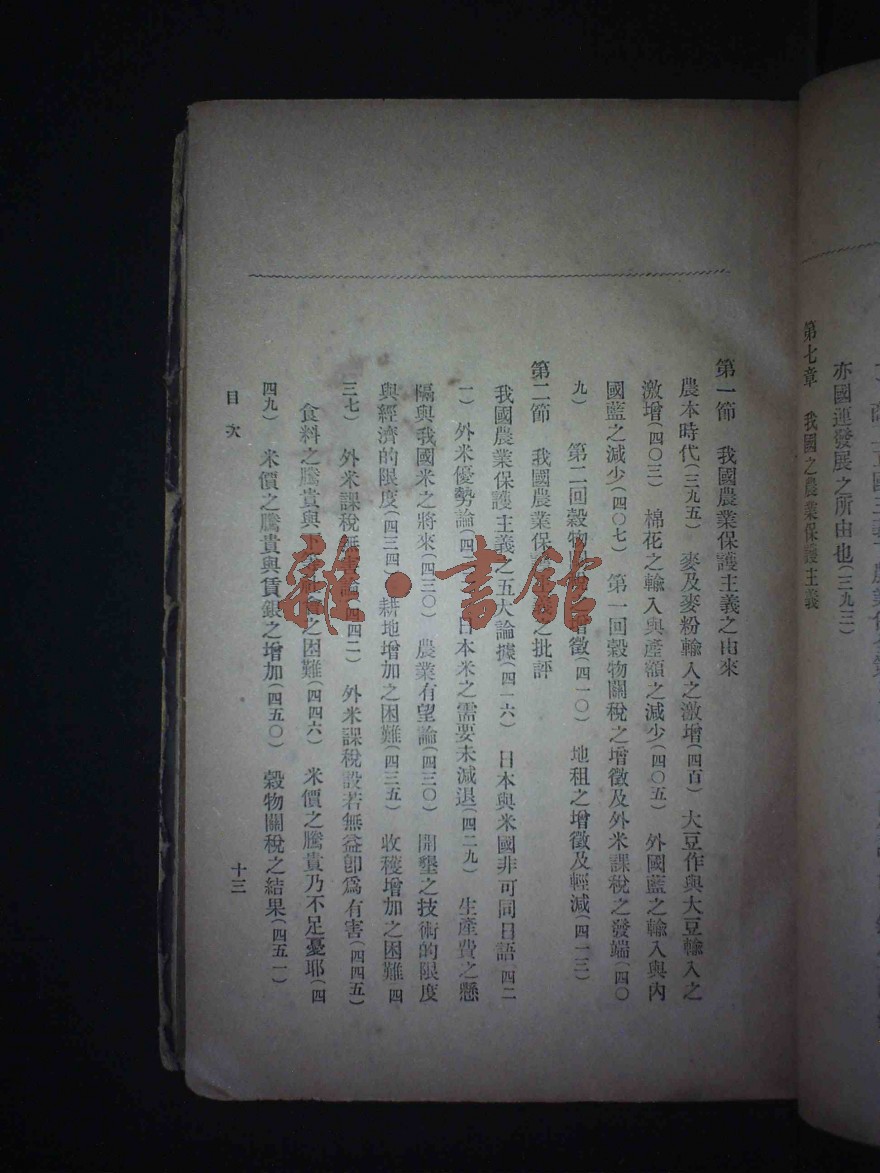 亦國運發展之所由也(三九三)
第七章 我國之農業保護主義
第一節 我國農業保護主義之由來
農本時代(三九五) 麥及麥粉輸入之激增(四百) 大豆作與大豆輸入之
激增(四〇三) 棉花之輸入與產額之減少(四〇五) 外國藍之輸入與內
國藍之減少(四〇七) 第一回穀物關稅之增徵及外米課稅之發端(四〇
九) 第二回穀物 增徵(四一〇) 地租之增徵及輕減(四一三)
第二節 我國農業保 之批評
我國農業保護主義之五大論據(四一六) 日本與米國非可同日語(四二
一) 外米優勢論(四二 日本米之需要未減退(四二九) 生產費之懸
隔與我國米之將來(四三〇) 農業有望論(四三〇) 開墾之技術的限度
與經濟的限度(四三四) 耕地增加之困難(四三五) 收穫增加之困難(四
三七) 外米課稅無 (四四二) 外米課稅設若無益卽爲有害(四四五)
食料之騰貴與 之困難(四四六) 米價之騰貴乃不足憂耶(四
四九) 米價之騰貴與賃銀之增加(四五〇) 穀物關稅之結果(四五一)
目次
十三
雜·書館